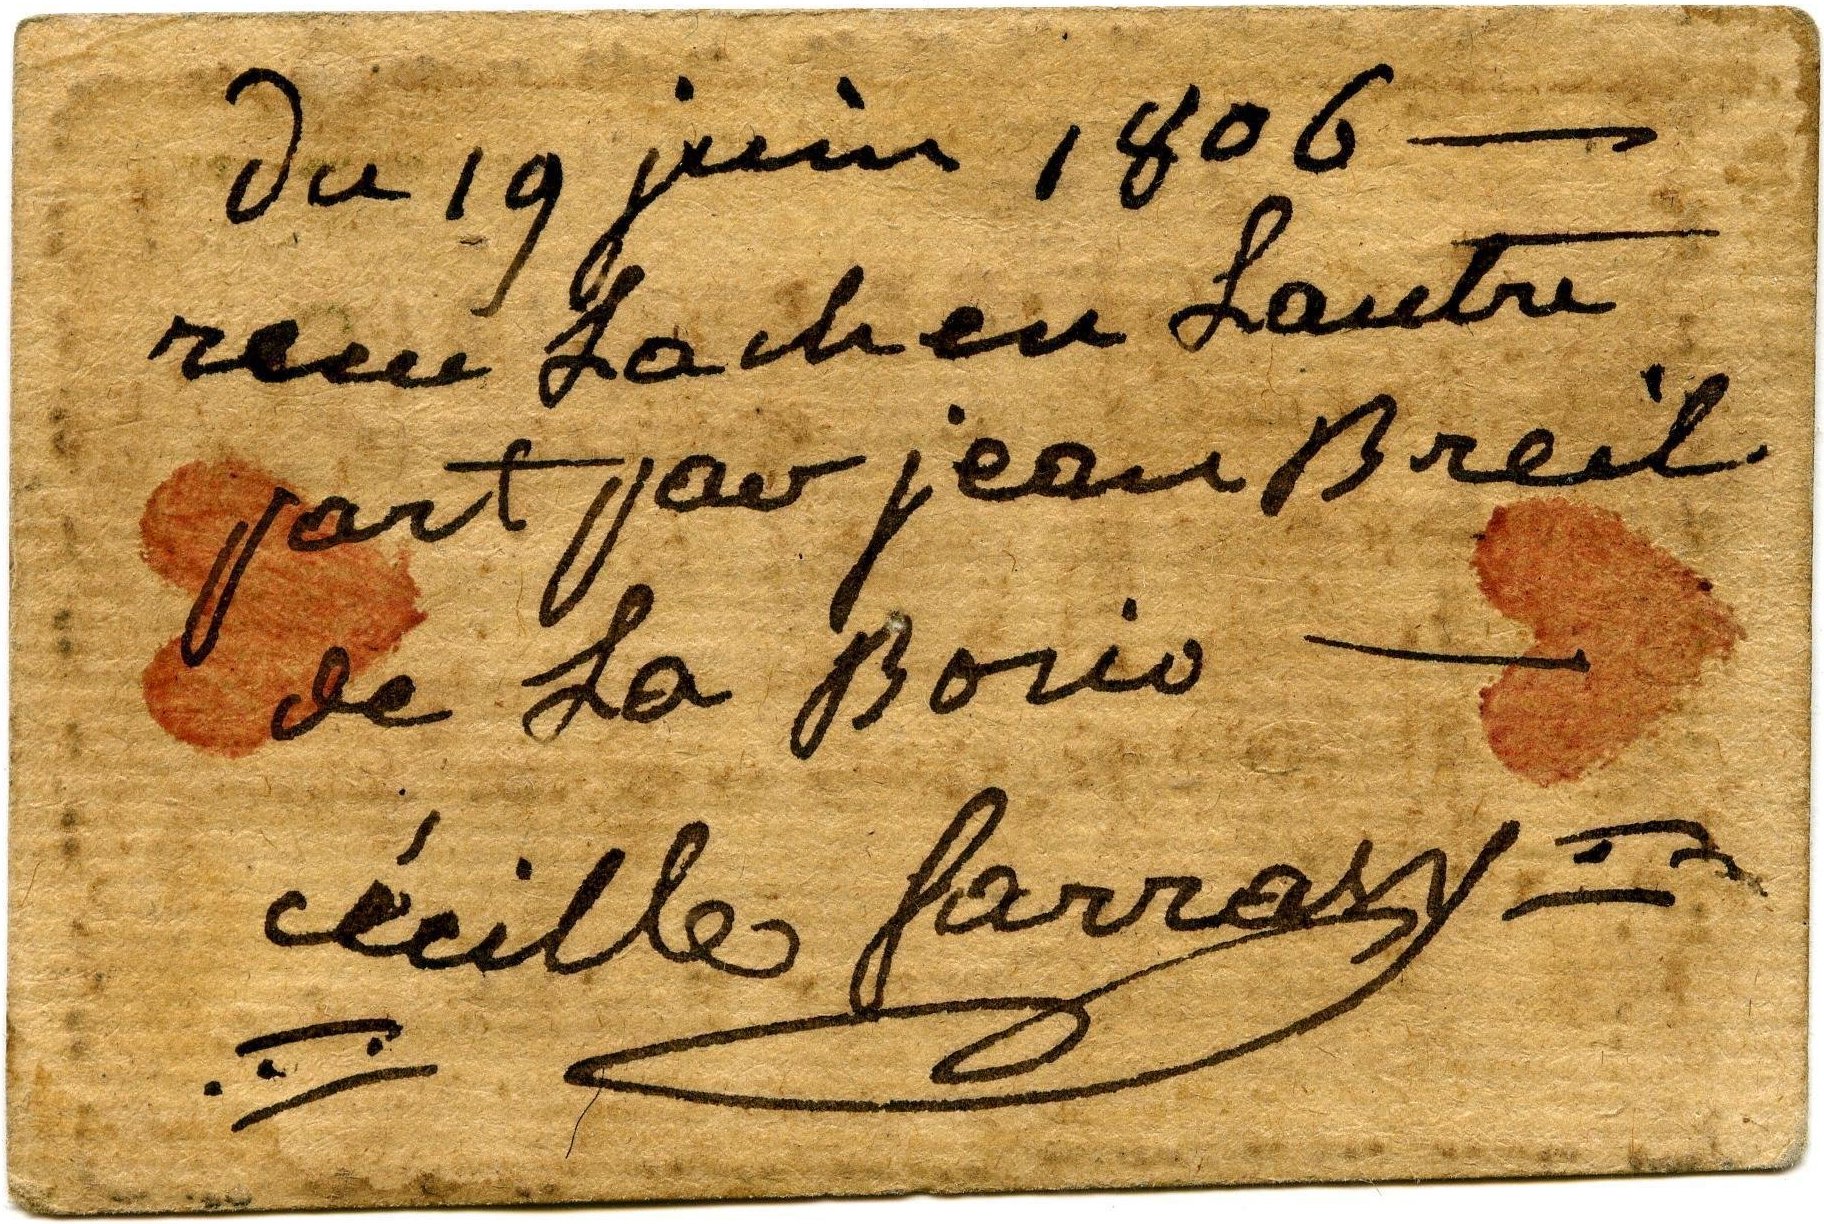 du 19 juin 1806
reçu La chen Lautre
part par jean Breil
de La Borio
cécille farrassy